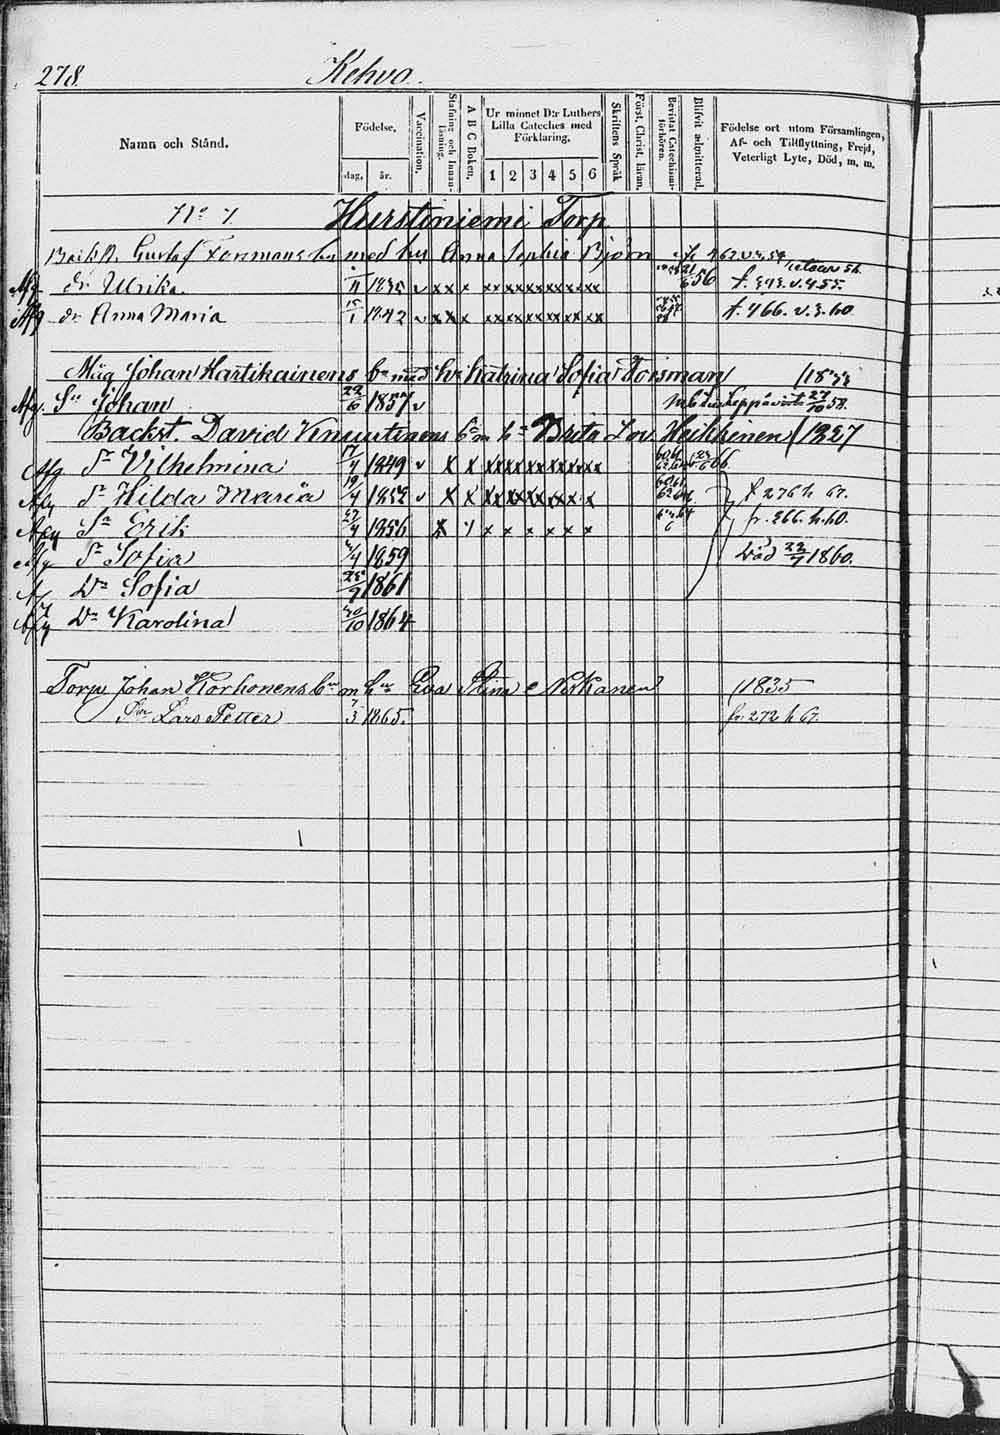 278.
Kehvo.
Namn och Stånd.
Födelse,
dag,
år.
Vaccination,
Stafning och Innanläsning.
A B C Boken,
Ur minnet D:r Luthers Lilla Cateches med Förklaring.
1 2 3 4 5 6
Skriftens Språk
Förat. Christ. läran,
Bevistat Catechismiförhören.
Blifvit admitterad.
Födelse ort utom Församlingen, Af- och Tillflyttning, Frejd, Veterligt Lyte, Död, m. m.
No 7. Hurstiniemi Torp
Gustaf Forsmans bn med hu Anna Sophia Björn
Afg dr Ulrika 11 1835 v x x x x x x x x x 56
Afg dr Anna Maria 15/1 1842 v x x x x x x x x x f. 466. v. 3. 60
Måg Johan Hartikainens bn med hu Katrina Sofia Forsman
Afg. Sn Johan 22/6 1857 v 27/10 58.
Backst. David Knuutinens bn m hu Brita Lov. Heikkinen /1827
Afg Dr Vilhelmina 17/4 1849 v x x x x x x x x 66
Afg Dr Hilda Maria 19/4 1852 v x x x x x x x x f 276 h 67.
Afg Sn Erik 27/4 1856 x x x x x x x x fr. 266. h. 60.
Afg Dr Sofia 4/4 1859 Död 22/7 1860.
Af Dr Sofia 28/9 1861
Afg Dr Karolina 30/10 1864
Torp Johan Korhonens bn m hu Eva Stina Notkanen /1835
Sn Lars Petter 7/3 1865. fr. 272 h 67.